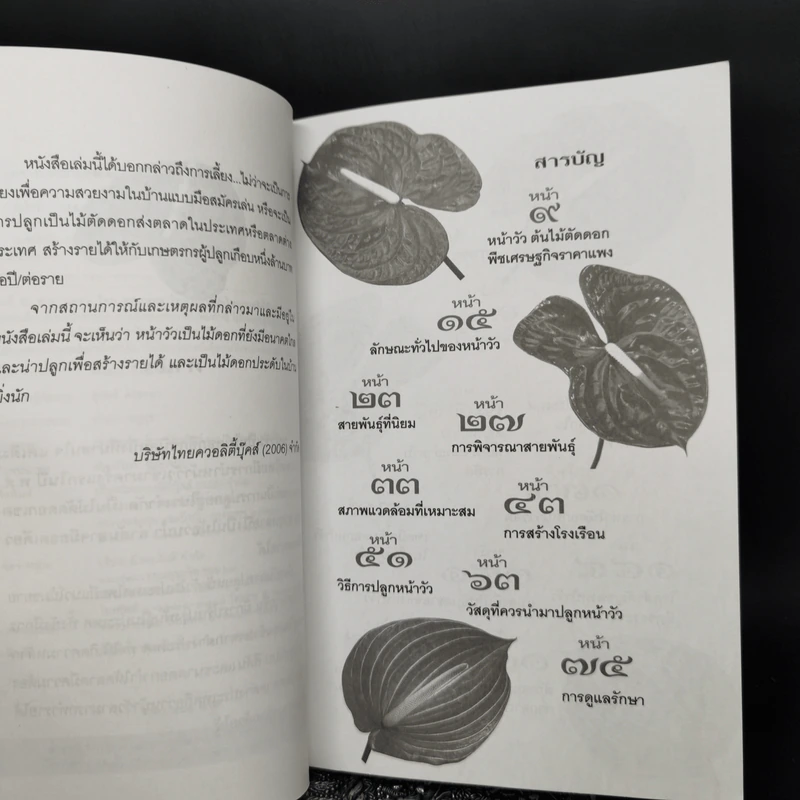 หนังสือเล่มนี้ได้บอกกล่าวถึงการเลี้ยง...ไม่ว่าจะเป็นการ
เพื่อความสวยงามในบ้านแบบมือสมัครเล่น หรือจะเป็น
ปลูกเป็นไม้ตัดดอกส่งตลาดในประเทศหรือตลาดต่าง
ประเทศ สร้างรายได้ให้กับเกษตรกรผู้ปลูกเกือบหนึ่งล้านบาท
ต่อปี/ต่อราย
จากสถานการณ์และเหตุผลที่กล่าวมาและมีอยู่ใน
หนังสือเล่มนี้ จะเห็นว่า หน้าวัวเป็นไม้ดอกที่ยังมีอนาคต
และน่าปลูกเพื่อสร้างรายได้ และเป็นไม้ดอกประดับในบ้าน
ยิ่งนัก
บริษัทไทยควอลิตี้บุ๊คส์ (2006) จำกัด
สารบัญ
หน้า
๙
หน้าวัว ต้นไม้ตัดดอก
พืชเศรษฐกิจราคาแพง
หน้า
๑๕
ลักษณะทั่วไปของหน้าวัว
หน้า
๒๓
สายพันธุ์ที่นิยม
หน้า
๒๗
การพิจารณาสายพันธุ์
หน้า
๓๓
สภาพแวดล้อมที่เหมาะสม
หน้า
๔๓
การสร้างโรงเรือน
หน้า
๕๑
วิธีการปลูกหน้าวัว
หน้า
๖๓
วัสดุที่ควรนำมาปลูกหน้าวัว
หน้า
๗๕
การดูแลรักษา